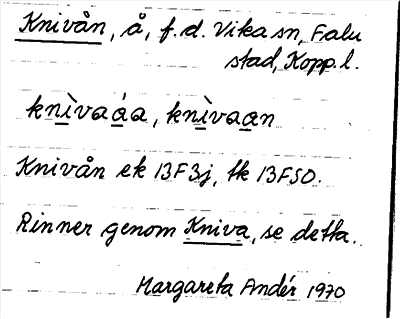 Knivån, å, f.d. Vika sn, Falu
stad, Kopp.l.
knìvaáa, knìvaan
Knivån ek 13F3j, tk 13FSO.
Rinner genom Kniva, se detta.
Margareta Andér 1970